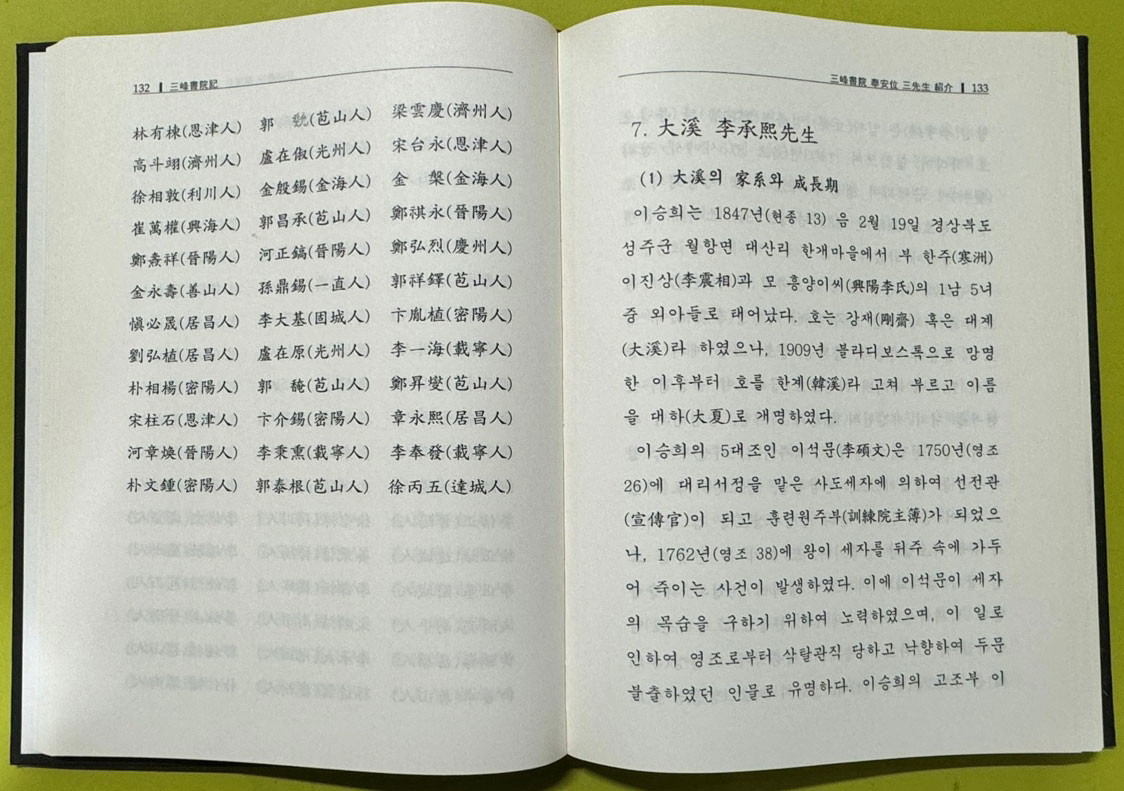 132 ┃ 三峰書院記
林有棟(恩津人) 郭 (苞山人) 梁雲慶(濟州人)
高斗翊(濟州人) 盧在俶(光州人) 宋台永(恩津人)
徐相敦(利川人) 金殷錫(金海人) 金 槃(金海人)
崔萬權(興海人) 郭昌承(苞山人) 鄭祺永(晉陽人)
鄭熹祥(晉陽人) 河正鎬(晉陽人) 鄭弘烈(慶州人)
金永壽(善山人) 孫鼎錫(一直人) 郭祥鐸(苞山人)
愼必晟(居昌人) 李大基(固城人) 卞胤植(密陽人)
劉弘植(居昌人) 盧在原(光州人) 李一海(載寧人)
朴相楊(密陽人) 郭 (苞山人) 鄭昇燮(苞山人)
宋柱石(恩津人) 卞介錫(密陽人) 章永熙(居昌人)
河章煥(晉陽人) 李秉熏(載寧人) 李奉發(載寧人)
朴文鍾(密陽人) 郭泰根(苞山人) 徐丙五(達城人)
三峰書院 奉安位 三先生 紹介 ┃ 133
7. 大溪 李承熙先生
(1) 大溪의 家系와 成長期
이승희는 1847년(현종 13) 음 2월 19일 경상북도
성주군 월항면 대산리 한개마을에서 부 한주(寒洲)
이진상(李震相)과 모 흥양이씨(興陽李氏)의 1남 5녀
중 외아들로 태어났다. 호는 강재(剛齋) 혹은 대계
(大溪)라 하였으나, 1909년 블라디보스톡으로 망명
한 이후부터 호를 한계(韓溪)라 고쳐 부르고 이름
을 대하(大夏)로 개명하였다.
이승희의 5대조인 이석문(李碩文)은 1750년(영조
26)에 대리서정을 맡은 사도세자에 의하여 선전관
(宣傳官)이 되고 훈련원주부(訓練院主簿)가 되었으
나, 1762년(영조 38)에 왕이 세자를 뒤주 속에 가두
어 죽이는 사건이 발생하였다. 이에 이석문이 세자
의 목숨을 구하기 위하여 노력하였으며, 이 일로
인하여 영조로부터 삭탈관직 당하고 낙향하여 두문
불출하였던 인물로 유명하다. 이승희의 고조부 이